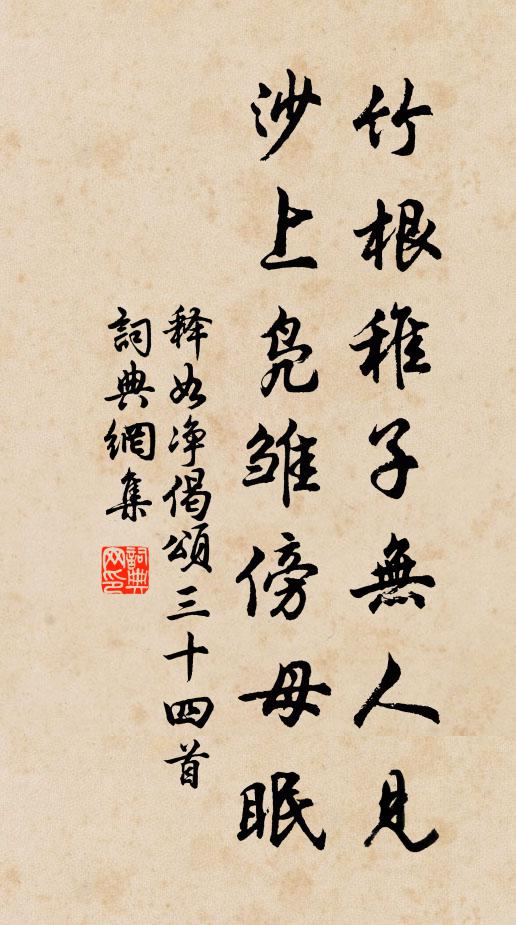 竹根稚子無人見
沙上凫雏傍母眠
释如净偈頌三十四首
詞典網集
詞典網印